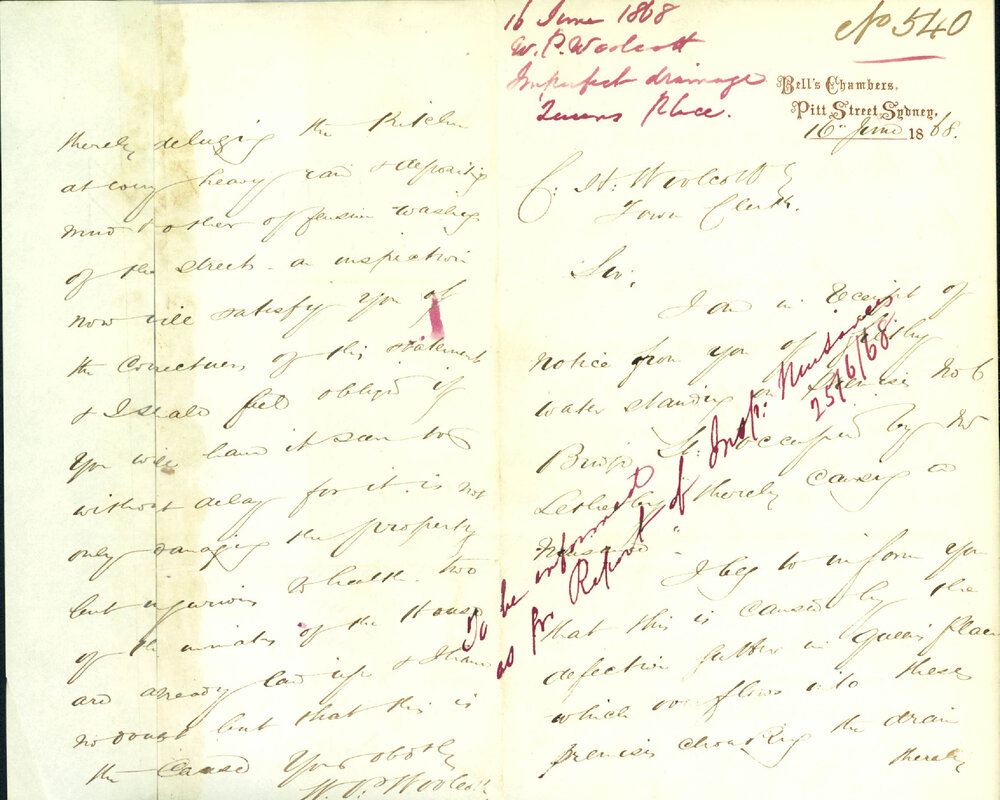 No 540
16 June 1868
W. P. Woolcott
Imperfect drainage
Queens Place.
Bell's Chambers,
Pitt Street, Sydney,
16 June 1868.
C. H. Woolcott
Town Clerk.
Sir,
I am in receipt of
notice from you of "filthy
water standing on premises No 6
Bridge St. occupied by Mr
thereby causing a
nuisance"
I beg to inform you
that this is caused by the
defective gutter in Queens Place
which overflows into these
premises choaking the drain
thereby
thereby deluging the Kitchen
at every heavy rain & depositing
mud & other offensive washings
of the streets. an inspection
now will satisfy you of
the correctness of this statement
& I shall feel obliged if
you will have it seen to
without delay for it is not
only damaging the property
but injurious to health. two
of the inmates of the House
are already laid up & I have
no doubt but that this is
the cause Yours obdtly
W. P. Woolcott
To be informed
as per Report of Insp: Nuisances
25/6/68